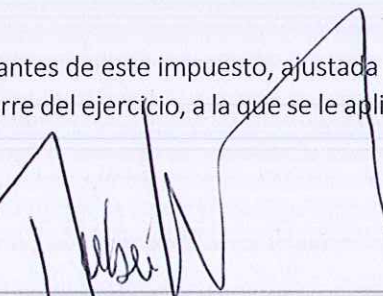 antes de este impuesto, ajustada
rre del ejercicio, a la que se le apli